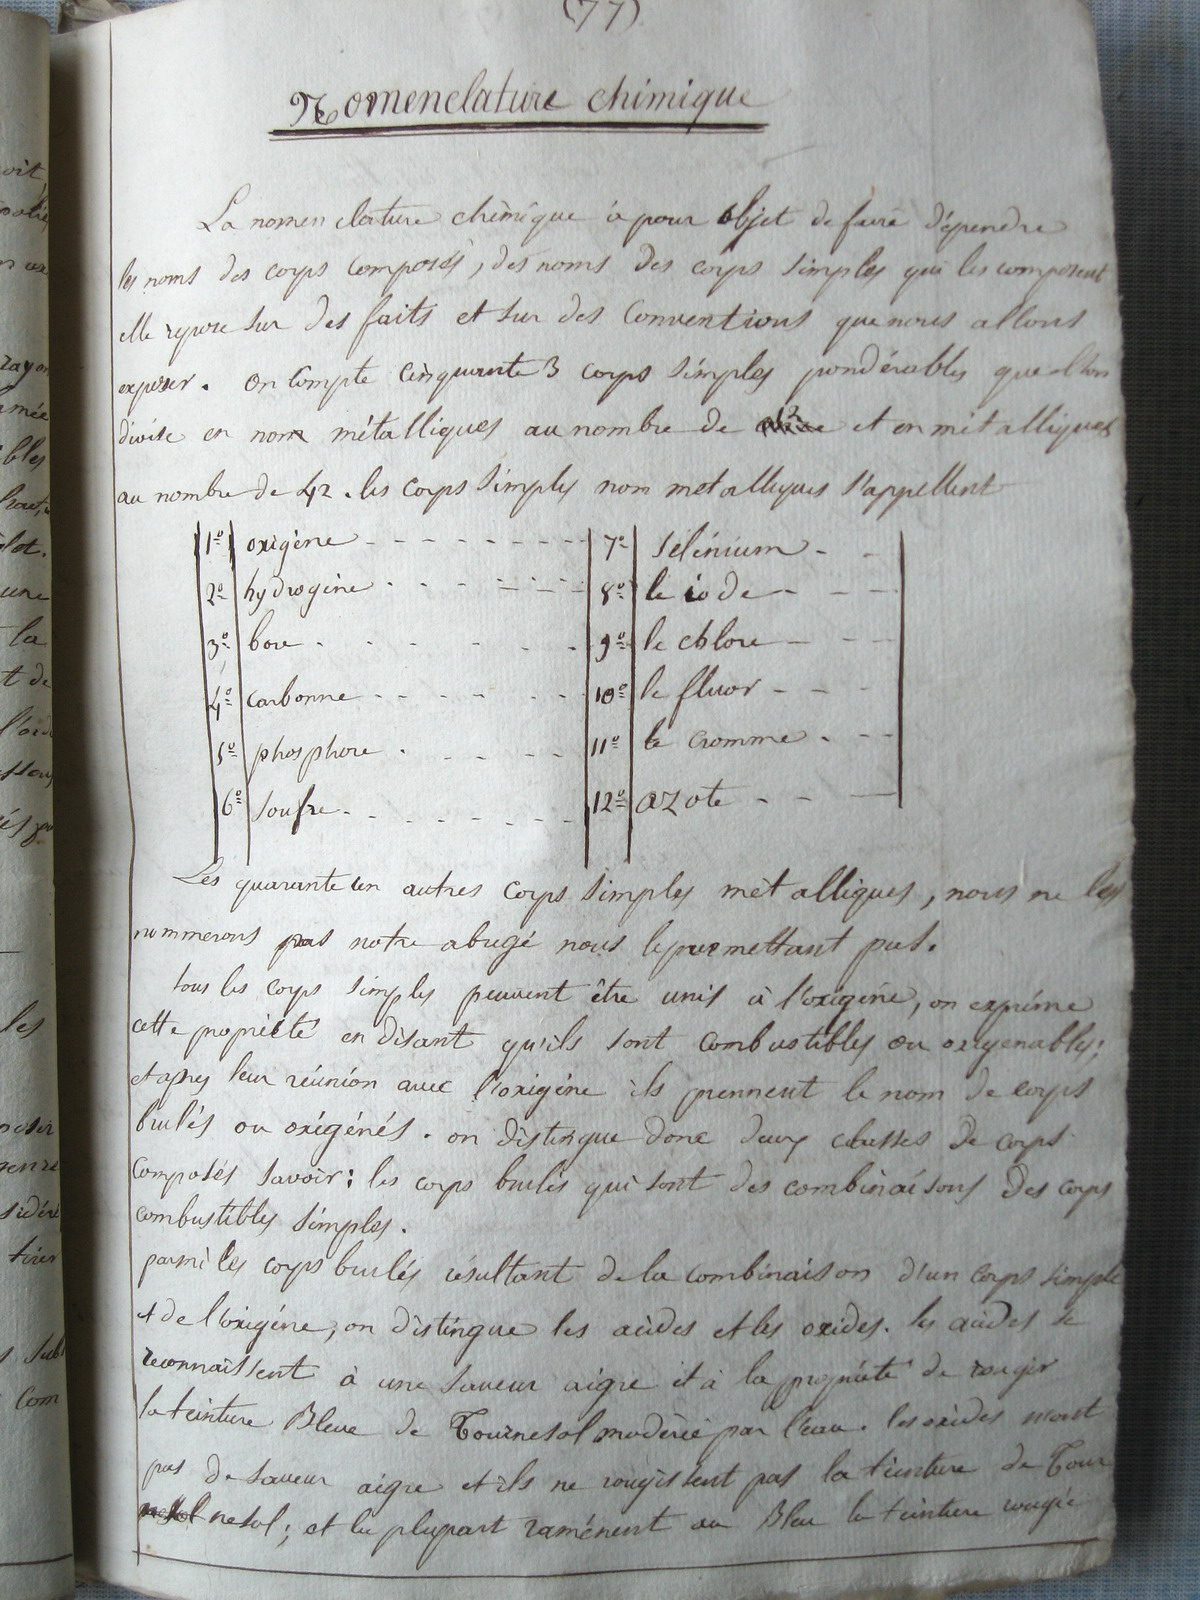 (77)
Nomenclature chimique
La nomenclature chimique à pour objet de faire dépendre
les noms des corps composés, des noms des corps simples qui les composent
elle repose sur des faits et sur des Conventions que nous allons
exposer. on Compte Cinquante 3 corps simples pondérables que l'on
divise en non métalliques au nombre de 12 et en métalliques
au nombre de 42. les corps simples non metalliques s'appellent
1º oxigène
2º hydrogène
3º bore
4º carbonne
5º phosphore
6º soufre
7º sélénium
8º le iode
9º le chlore
10º le fluor
11º le cromme
12º azote
Les quarante un autres corps simples métalliques, nous ne les
nommerons pas notre abrégé nous le permettant pas.
tous les corps simples peuvent être unis à l'oxigène, on exprime
cette propriété en disant qu'ils sont combustibles ou oxigenables;
et après leur réunion avec l'oxigène ils prennent le nom de corps
brulés ou oxigénés. on distingue donc deux classes de corps
composés savoir: les corps brulés qui sont des combinaisons des corps
combustibles simples.
parmi les corps brulés résultant de la combinaison d'un corps simple
et de l'oxigène, on distingue les acides et les oxides. les acides se
reconnaissent à une saveur aigre et à la propriété de rougir
la teinture Bleue de Tournesol moderée par l'eau. les oxides n'ont
pas de saveur aigre et ils ne rougissent pas la teinture de Tour
nesol; et la plupart ramènent au Bleu la teinture rougie
oit,
rayon
bles
une
la
t de
les
tirer
Com